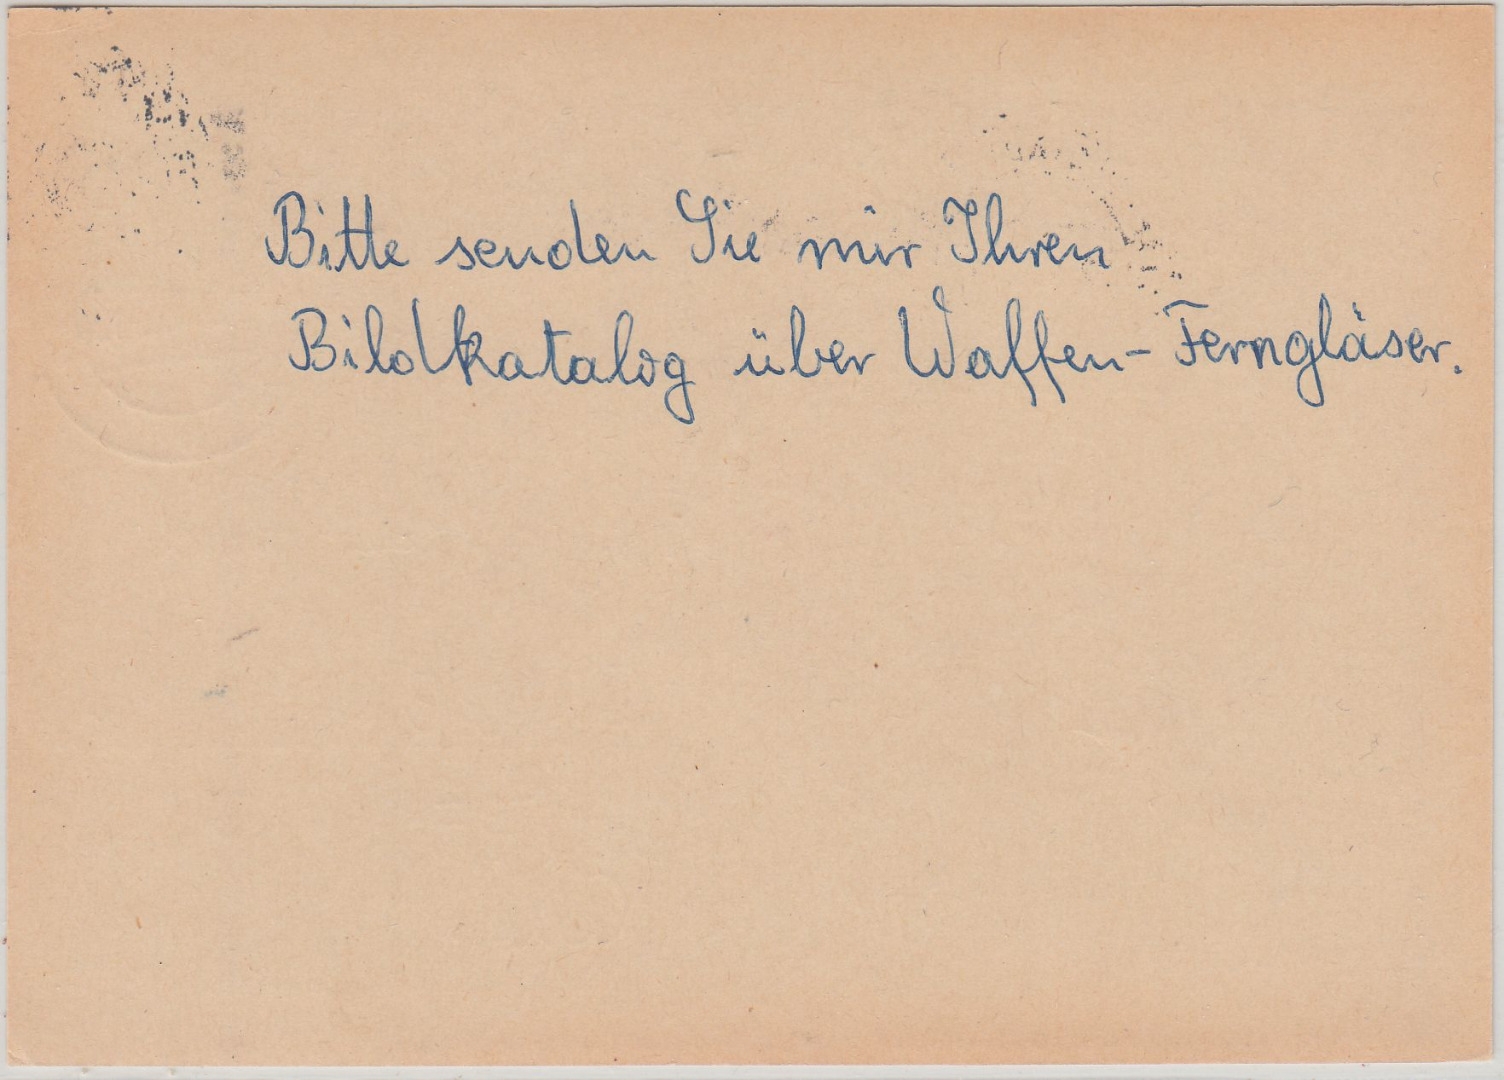 Bitte senden Sie mir Ihren
Bildkatalog über Waffen-Ferngläser.